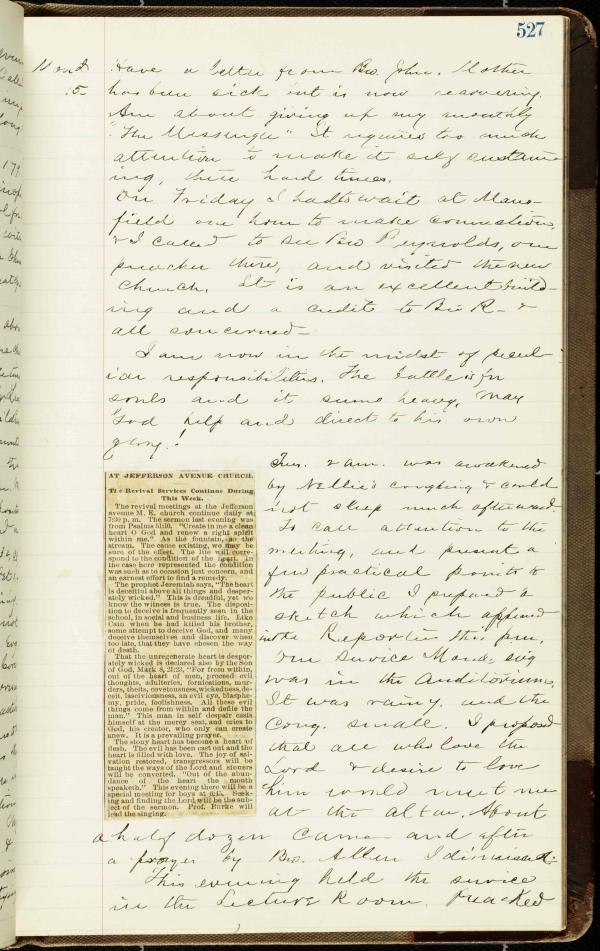 527
Mond
5
Have a letter from Bro. John. Mother
has been sick but is now recovering.
Am about giving up my monthly
"The Messenger" It requires too much
attention to make it self sustain-
ing, these hard times.
On Friday I had to wait at Mans-
field one hour to make connection,
& I called to see Bro Reynolds, our
preacher there, and visited the new
church. It is an excellent build-
ing and a credit to Bro R- &
all concerned-
I am now in the midst of pecul-
iar responsibilities. The battle is for
souls and it seems heavy, May
God help and direct to his own
glory!
AT JEFFERSON AVENUE CHURCH.
The Revival Services Continue During
This Week.
The revival meetings at the Jefferson
avenue M. E. church continue daily at
7:30 p. m. The sermon last evening was
from Psalms 51:10. "Create in me a clean
heart O God and renew a right spirit
within me." As the fountain, so the
stream. The cause existing, we may be
sure of the effect. The life will corre-
spond to the condition of the heart. In
the case here represented the condition
was such as to occasion just concern, and
an earnest effort to find a remedy.
The prophet Jeremiah says, "The heart
is deceitful above all things and desper-
ately wicked." This is dreadful, yet we
know the witness is true. The disposi-
tion to deceive is frequently seen in the
school, in social and business life. Like
Cain when he had killed his brother,
some attempt to deceive God, and many
deceive themselves and discover when
too late, that they have chosen the way
of death.
That the unregenerate heart is desper-
ately wicked is declared also by the Son
of God, Mark 8, 21:23. "For from within,
out of the heart of men, proceed evil
thoughts, adulteries, fornications, mur-
ders, thefts, covetousness, wickedness, de-
ceit, lasciviousness, an evil eye, blasphe-
my, pride, foolishness. All these evil
things come from within and defile the
man." This man in self despair casts
himself at the mercy seat, and cries to
God, his creator, who only can create
anew. It is a prevailing prayer.
The stony heart has become a heart of
flesh. The evil has been cast out and the
heart is filled with love. The joy of sal-
vation restored, transgressors will be
taught the ways of the Lord and sinners
will be converted. "Out of the abun-
dance of the heart the mouth
speaketh." This evening there will be a
special meeting for boys at 6:45. Seek-
ing and finding the Lord will be the sub-
ject of the sermon. Prof. Burke will
lead the singing.
Tues. 2 am. was awakened
by Nellie's coughing & could
not sleep much afterward.
To call attention to the
meeting, and present a
few practical points to
the public I prepared a
sketch which appeared
in the Reporter this p.m.
Our service Mond. evg
was in the Auditorium.
It was rainy and the
Cong. small. I proposed
that all who love the
Lord & desire to love
him would meet me
at the altar. About
a half dozen came and after
a prayer by Bro. Allen I dismissed.
This evening held the service
in the Lecture Room. Preached